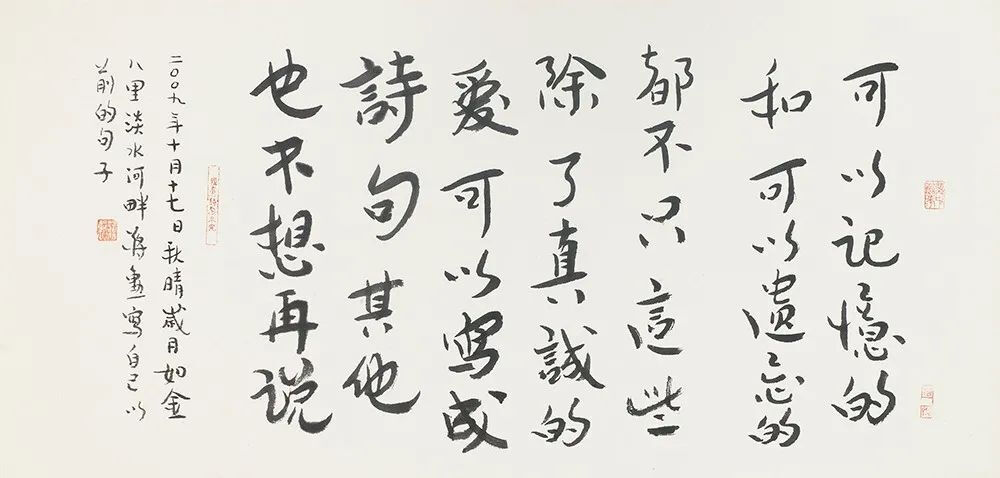 可以记憶的
和可以遗忘的
都不只這些
除了真誠的
爱可以寫成
詩句其他
也不想再説
二〇〇九年十月十七日秋晴歲月如金
八里淡水河畔蔣勳寫自己以
前的句子